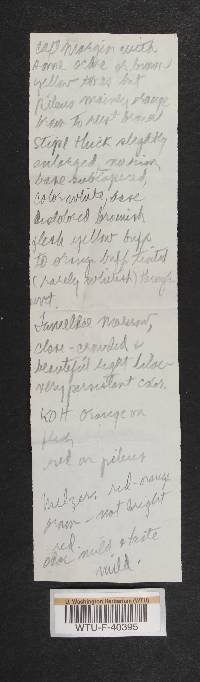 cap margin with
some ochre or brown
yellow tones but
pileus mainly orange
brown to rust brown
Stipe thick slightly
enlarged, no ring
base subtapered,
color white, base
discolored brownish
flesh yellow buff
to orange buff tints
(rarely whitish) through
out.
Lamellae narrow,
close-crowded &
beautiful light lilac-
very persistent color.
KOH orange on
flesh
red on pileus
Melzers. red-orange
brown - not bright
red.
odor mild & taste
mild.
U. Washington Herbarium (WTU)
WTU-F-40395